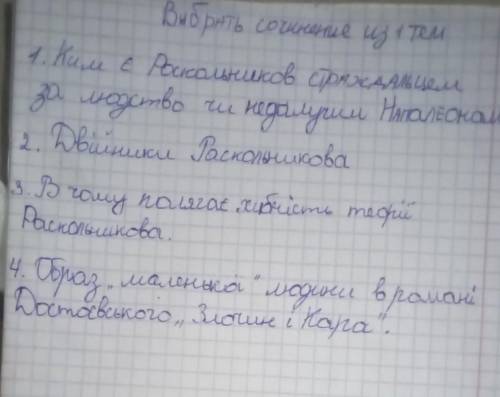 Выбрать сочинение из 1 тем
1. Ким є Роскольников страждальцем
за людство чи недолугим Наполеоном
2. Двійники Раскольникова
3. В чому полягає хибність теорії
Раскольникова.
4. Образ „маленька" людини в романі
Достоєвського „Злочин і Кара".